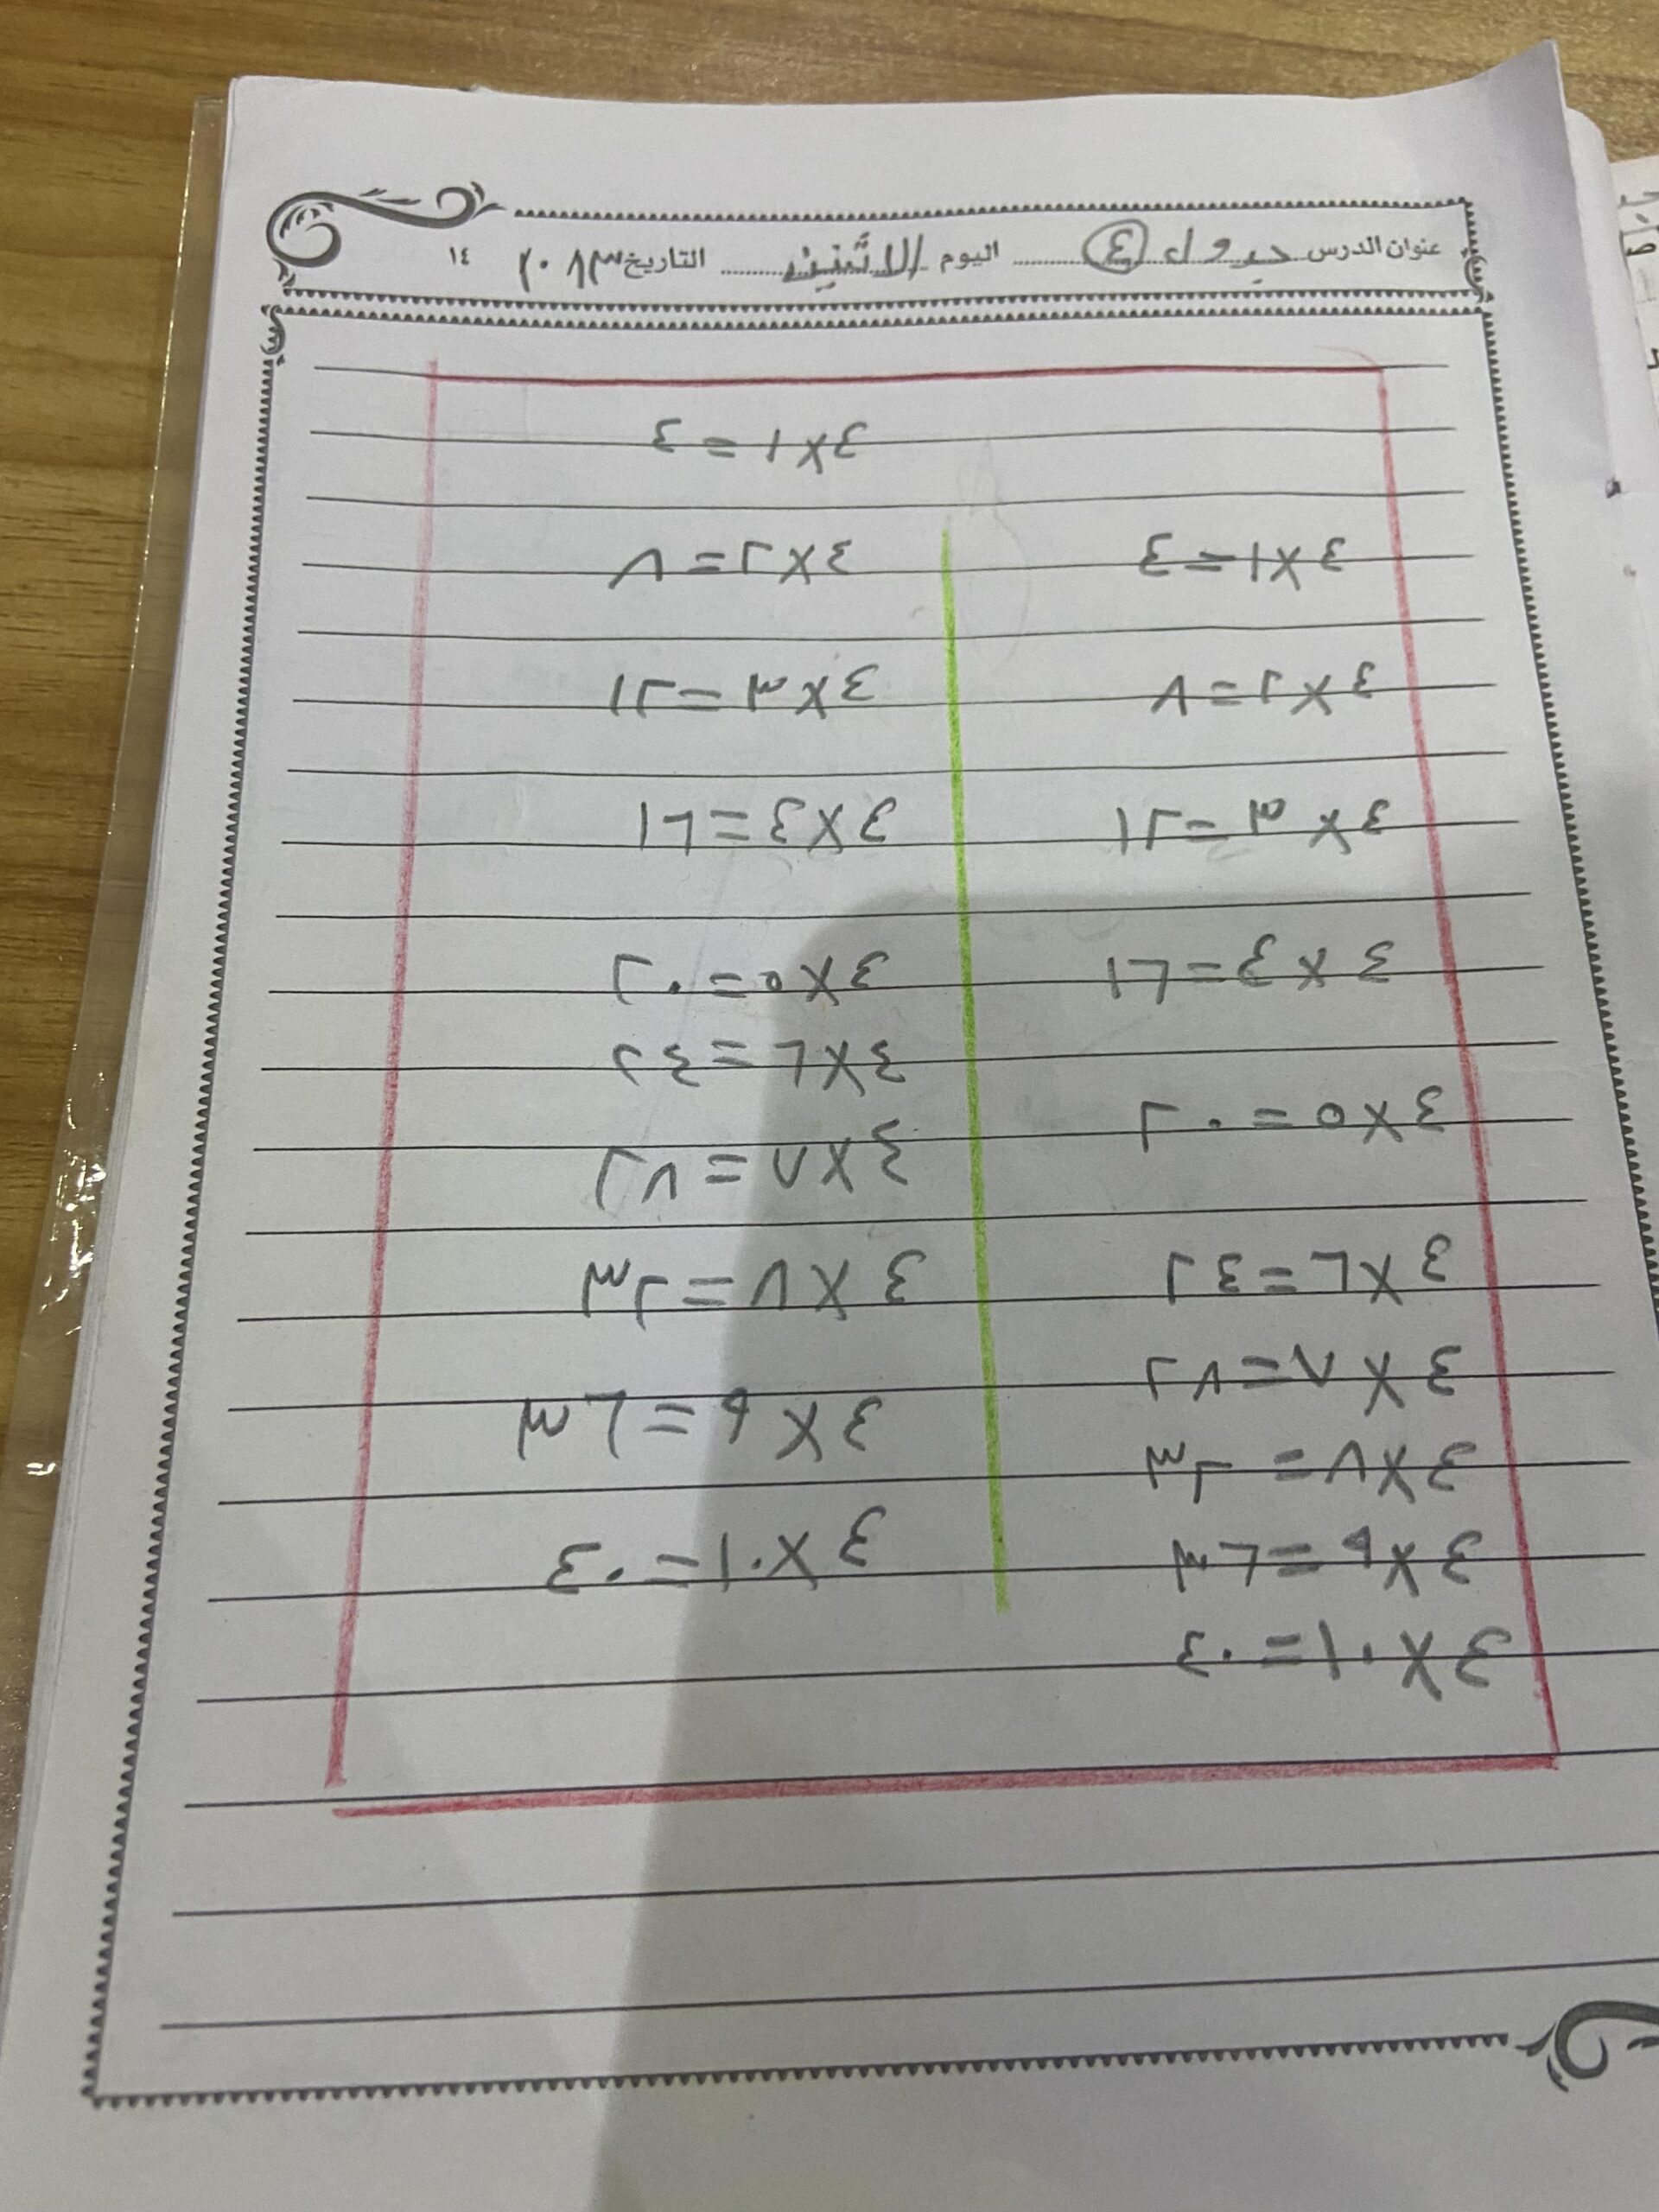 عنوان الدرس جدول ٤ اليوم الاثنين التاريخ ١٤
٤×١=٤
٤×٢=٨
٤×٣=١٢
٤×٤=١٦
٤×٥=٢٠
٤×٦=٢٤
٤×٧=٢٨
٤×٨=٣٢
٤×٩=٣٦
٤×١٠=٤٠
٤×١=٤
٤×٢=٨
٤×٣=١٢
٤×٤=١٦
٤×٥=٢٠
٤×٦=٢٤
٤×٧=٢٨
٤×٨=٣٢
٤×٩=٣٦
٤×١٠=٤٠